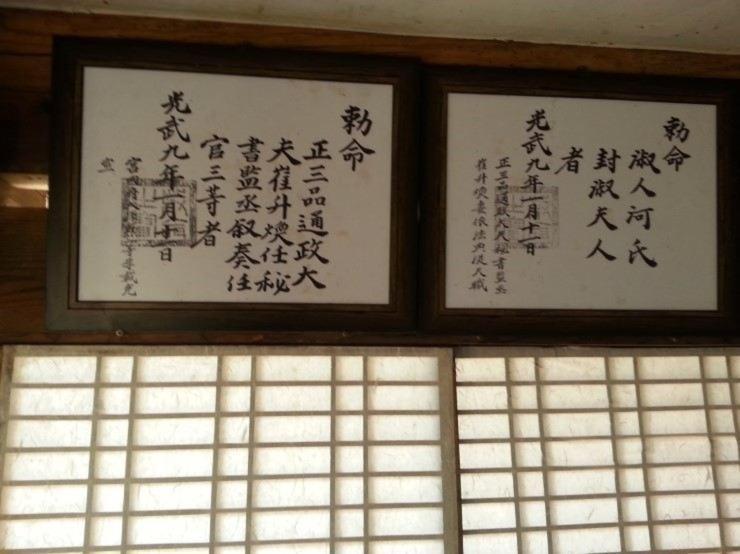 勅命
淑人河氏
封淑夫人
者
光武九年一月十一日
正三品通政大夫秘書監丞
崔升煥妻依法典從夫職
勅命
正三品通政大
夫崔升煥任秘
書監丞叙奏任
官三等者
光武九年一月十一日
宮內府大臣 等李載克